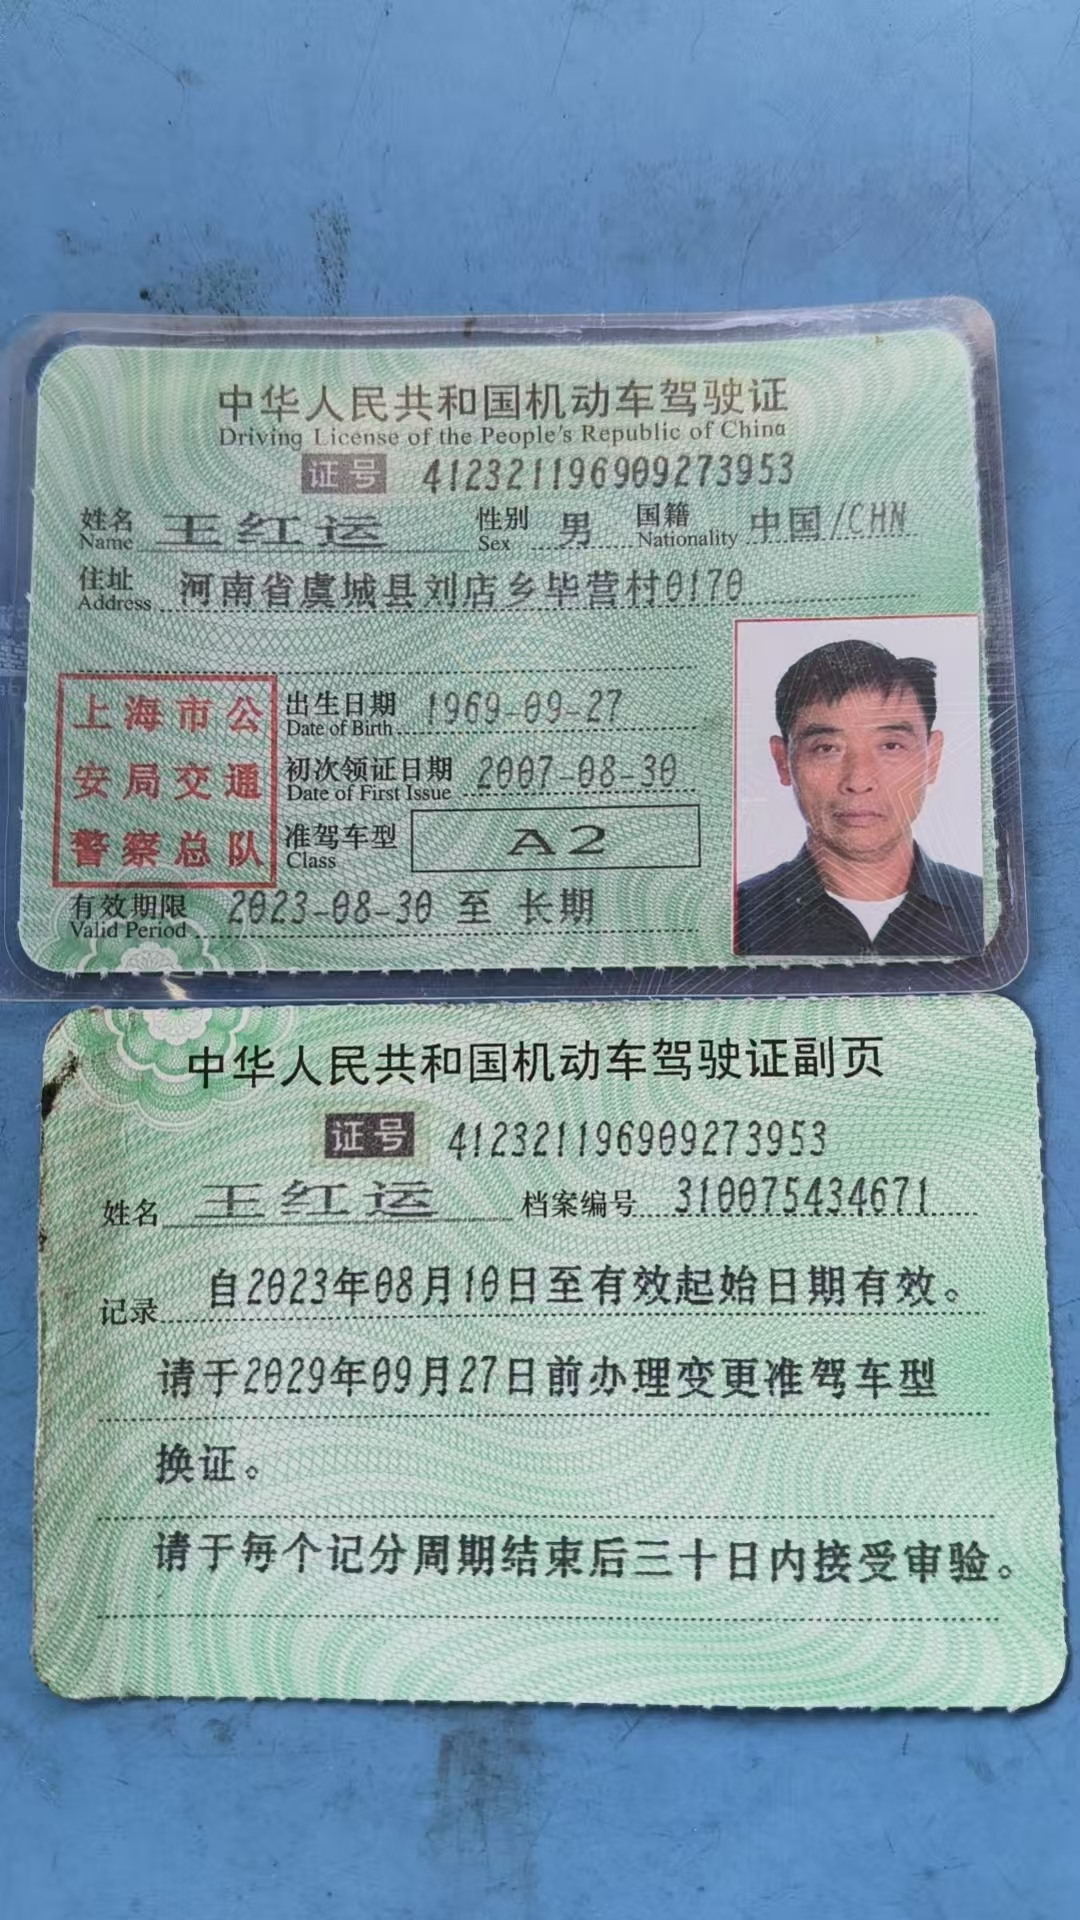 中华人民共和国机动车驾驶证
Driving License of the People's Republic of China
证号 412321196909273953
姓名 王红运 性别 男 国籍 中国/CHN
Name Sex Nationality
住址 河南省虞城县刘店乡毕营村0170
Address
上海市公
安局交通
警察总队
出生日期 1969-09-27
Date of Birth
初次领证日期 2007-08-30
Date of First Issue
准驾车型 A2
Class
有效期限 2023-08-30 至 长期
Valid Period
中华人民共和国机动车驾驶证副页
证号 412321196909273953
姓名 王红运 档案编号 310075434671
记录 自2023年08月10日至有效起始日期有效。
请于2029年09月27日前办理变更准驾车型
换证。
请于每个记分周期结束后三十日内接受审验。